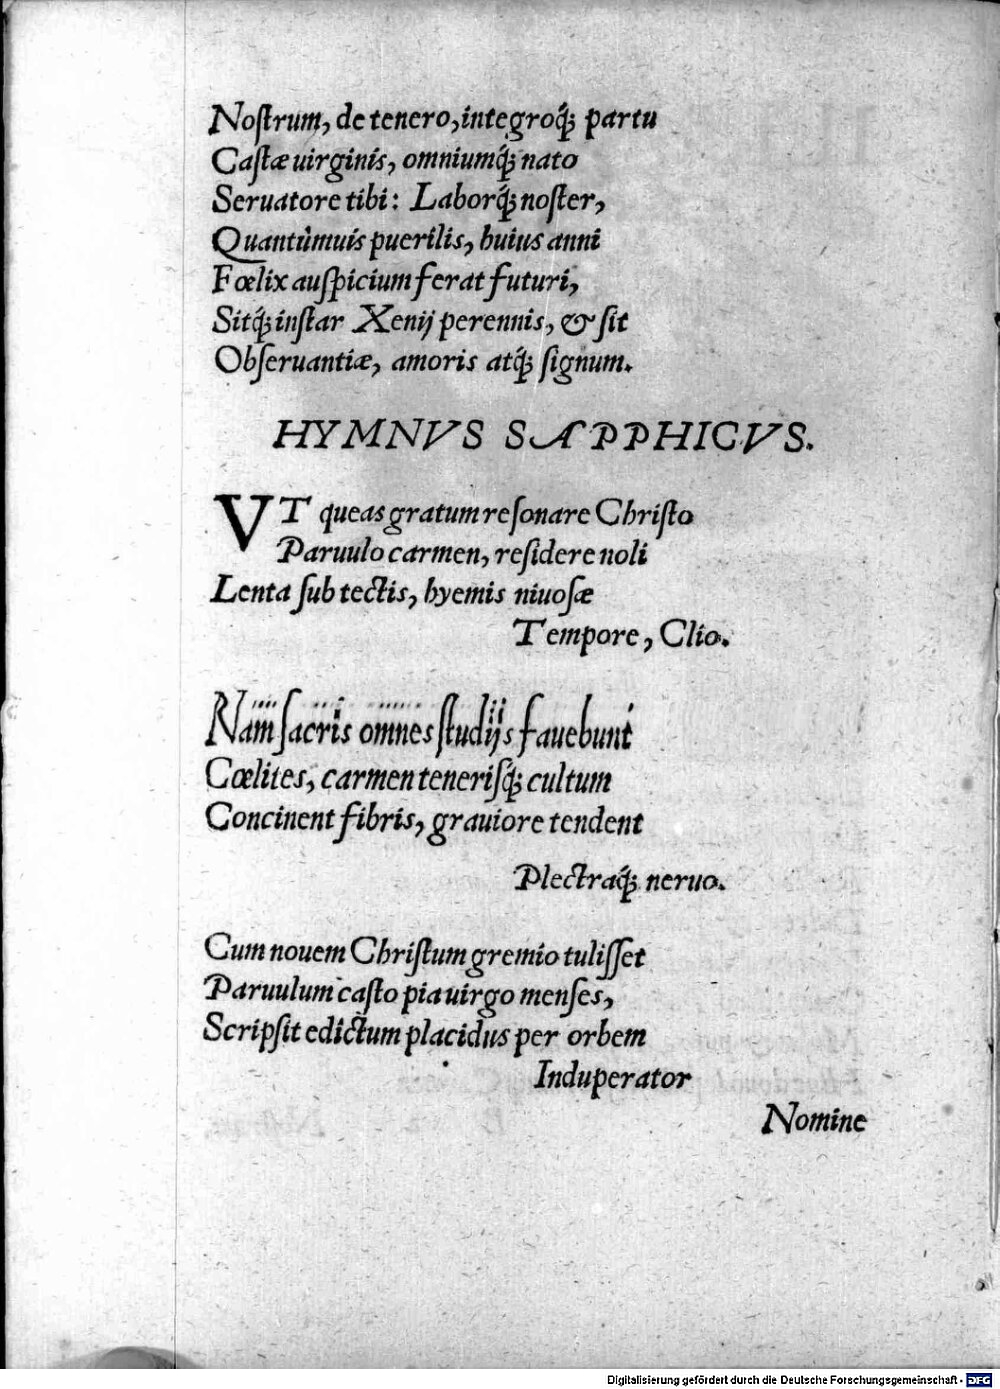 Noſtrum, de tenero, integroq́; partu
Caſtæ uirginis, omniumq́; nato
Seruatore tibi: Laborq́; noſter,
Quantũmuis puerilis, huius anni
Fœlix auſpicium ferat futuri,
Sitq́; inſtar Xenij perennis, & ſit
Obſeruantiæ, amoris atq́; ſignum.
HYMNVS SAPPHICVS.
VT queas gratum reſonare Chriſto
Paruulo carmen, reſidere noli
Lenta ſub tectis, hyemis niuoſæ
Tempore, Clio.
Nam ſacris omnes ſtudijs fauebunt
Cœlites, carmen teneriſq́; cultum
Concinent fibris, grauiore tendent
Plectraq́; neruo.
Cum nouem Chriſtum gremio tuliſſet
Paruulum caſto pia uirgo menſes,
Scripſit edictum placidus per orbem
Induperator
Nomine
Digitalisierung gefördert durch die Deutsche Forschungsgemeinschaft - DFG